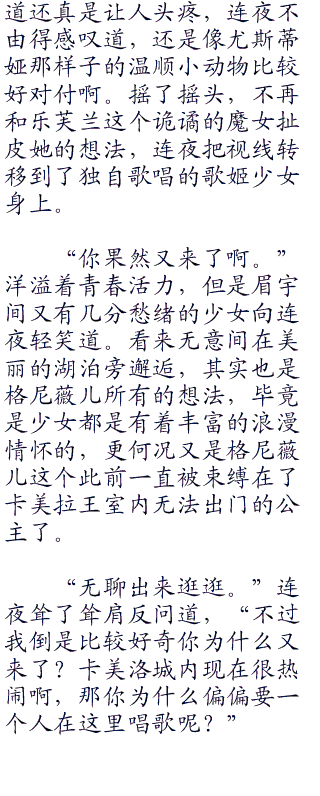 道还真是让人头疼，连夜不
由得感叹道，还是像尤斯蒂
娅那样子的温顺小动物比较
好对付啊。摇了摇头，不再
和乐芙兰这个诡谲的魔女扯
皮她的想法，连夜把视线转
移到了独自歌唱的歌姬少女
身上。
“你果然又来了啊。”
洋溢着青春活力，但是眉宇
间又有几分愁绪的少女向连
夜轻笑道。看来无意间在美
丽的湖泊旁邂逅，其实也是
格尼薇儿所有的想法，毕竟
是少女都是有着丰富的浪漫
情怀的，更何况又是格尼薇
儿这个此前一直被束缚在了
卡美拉王室内无法出门的公
主了。
“无聊出来逛逛。”连
夜耸了耸肩反问道，“不过
我倒是比较好奇你为什么又
来了？卡美洛城内现在很热
闹啊，那你为什么偏偏要一
个人在这里唱歌呢？”